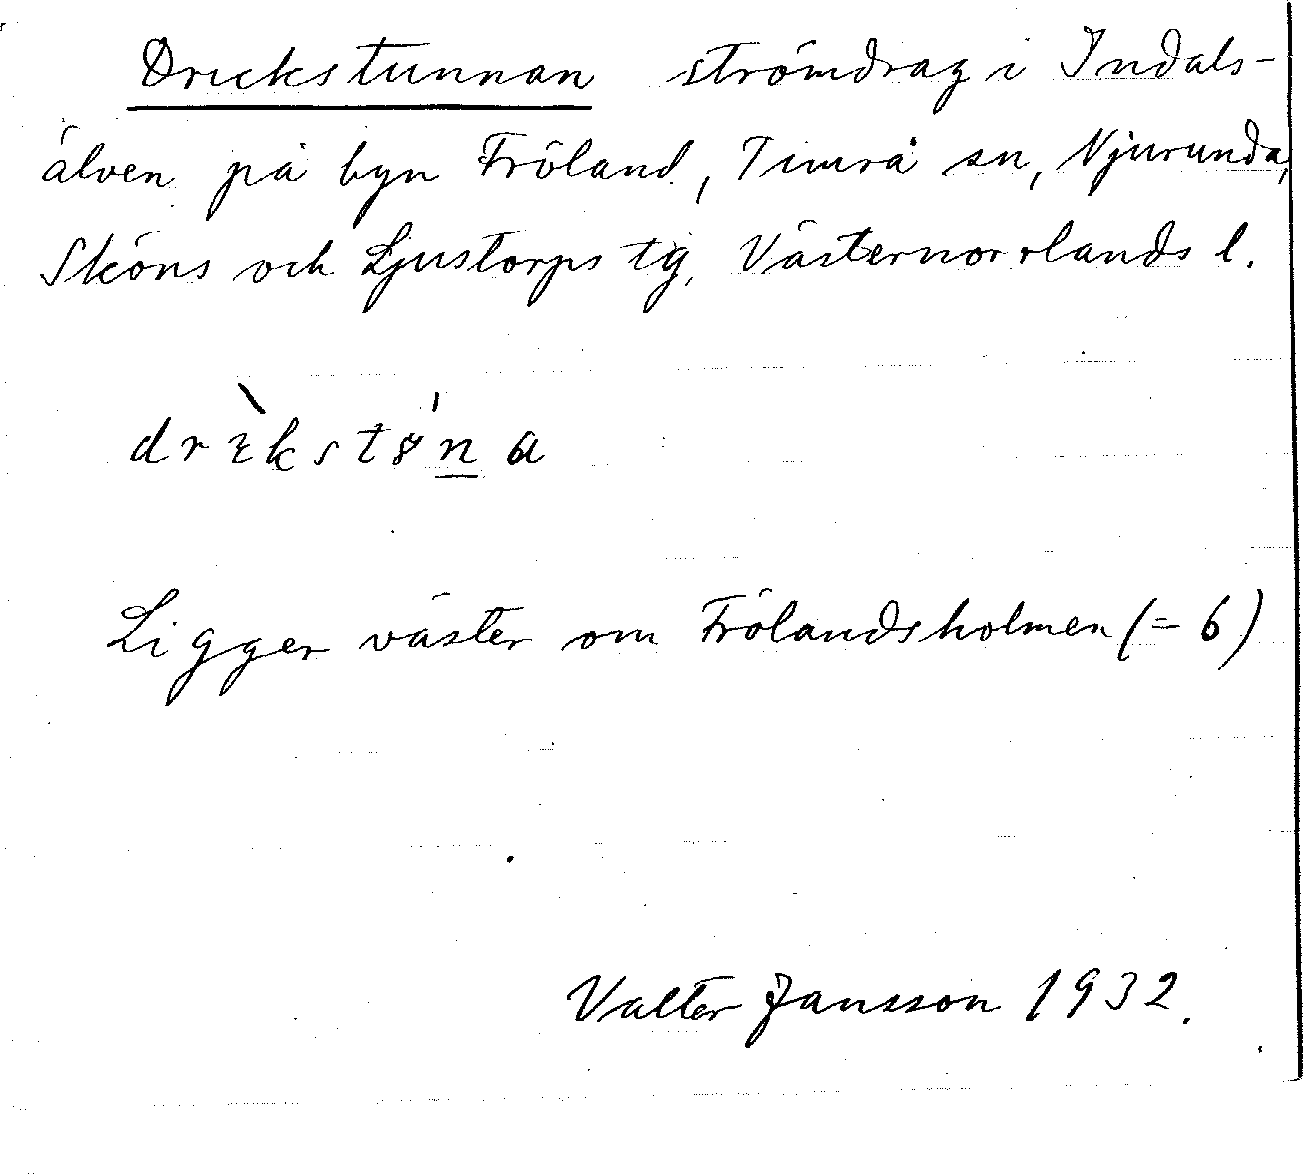 Drickstunnan strömdrag i Indals-
älven på byn Fröland, Timrå sn, Njurunda,
Sköns och Ljustorps tg, Västernorrlands l.
drɩ̀kstø̍n̲a
Ligger väster om Frölandsholmen (= 6)
Valter Jansson 1932.